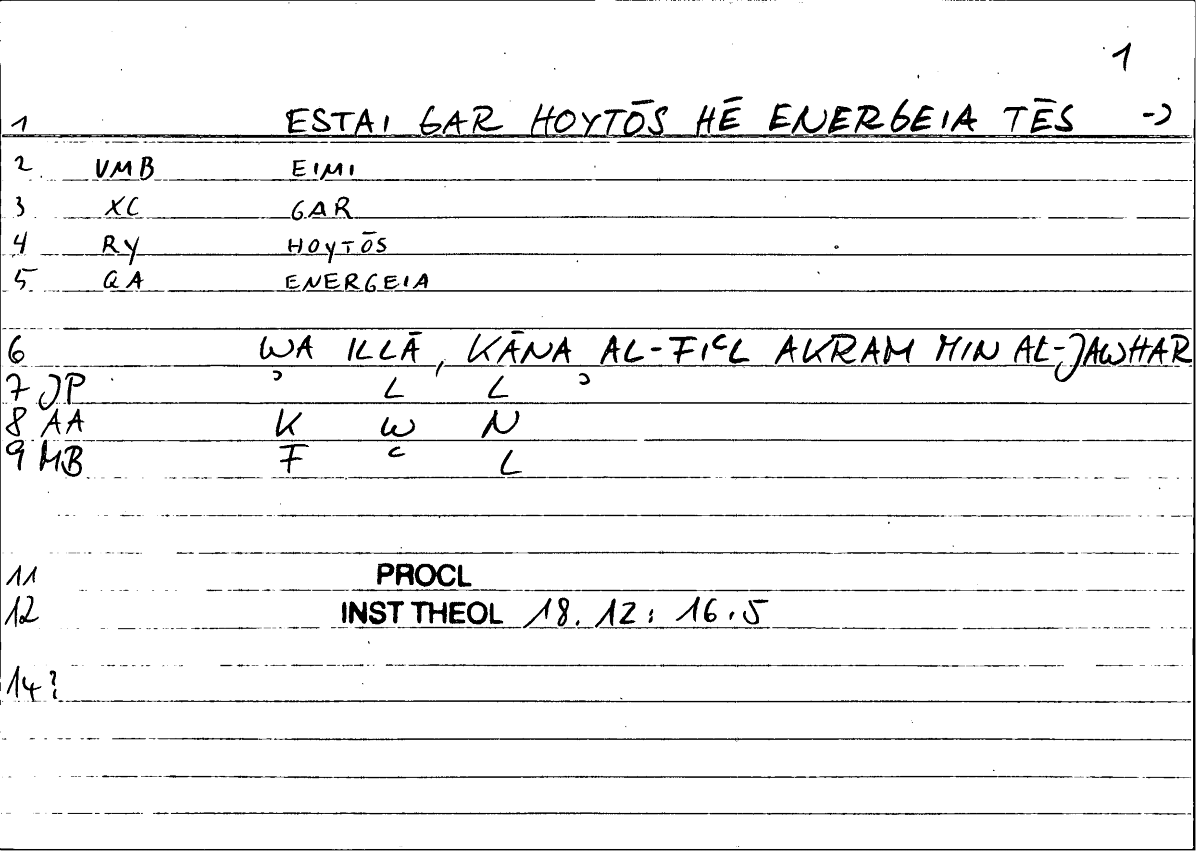 1
1 ESTAI GAR HOYTŌS HĒ ENERGEIA TĒS ->
2 VMB EIMI
3 XC GAR
4 RY HOYTŌS
5 QA ENERGEIA
6 WA ILLĀ, KĀNA AL-FIʿL AKRAM MIN AL-JAWHAR
7 JP ʾ L L ʾ
8 AA K W N
9 MB F ʿ L
11 PROCL
12 INST THEOL 18.12: 16.5
14?